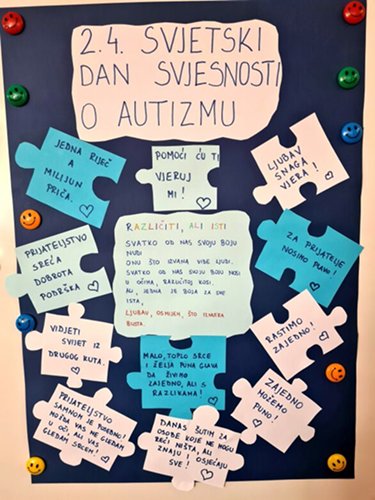 2.4. SVJETSKI
DAN SVJESNOSTI
O AUTIZMU
JEDNA RIJEČ
A
MILIJUN
PRIČA.
POMOĆI ĆU TI
VJERUJ
MI!
LJUBAV
SNAGA
VJERA!
PRIJATELJSTVO
SREĆA
DOBROTA
PODRŠKA
RAZLIČITI, ALI ISTI
SVATKO OD NAS SVOJU BOJU
NUDI
ONU ŠTO IZVANA VIDE LJUDI.
SVATKO OD NAS SVOJU BOJU NOSI
U OČIMA, RAZLIČITOJ KOSI.
ALI, JEDNA JE BOJA ZA SVE
ISTA,
LJUBAV, OSMIJEH, ŠTO IZNUTRA
BLISTA.
ZA PRIJATELJE
NOSIMO PLAVO!
VIDJETI
SVIJET IZ
DRUGOG KUTA.
MALO, TOPLO SRCE
I ŽELJA PUNA GLAVA
DA ŽIVIMO
ZAJEDNO, ALI S
RAZLIKAMA!
RASTIMO
ZAJEDNO!
PRIJATELJSTVO
SAMNOM JE POSEBNO!
MOŽDA VAS NE GLEDAM
U OČI ALI VAS
GLEDAM SRCEM!
DANAS ŠUTIM ZA
OSOBE KOJE NE MOGU
REĆI NIŠTA, ALI
ZNAJU I OSJEĆAJU
SVE!
ZAJEDNO
MOŽEMO
PUNO!